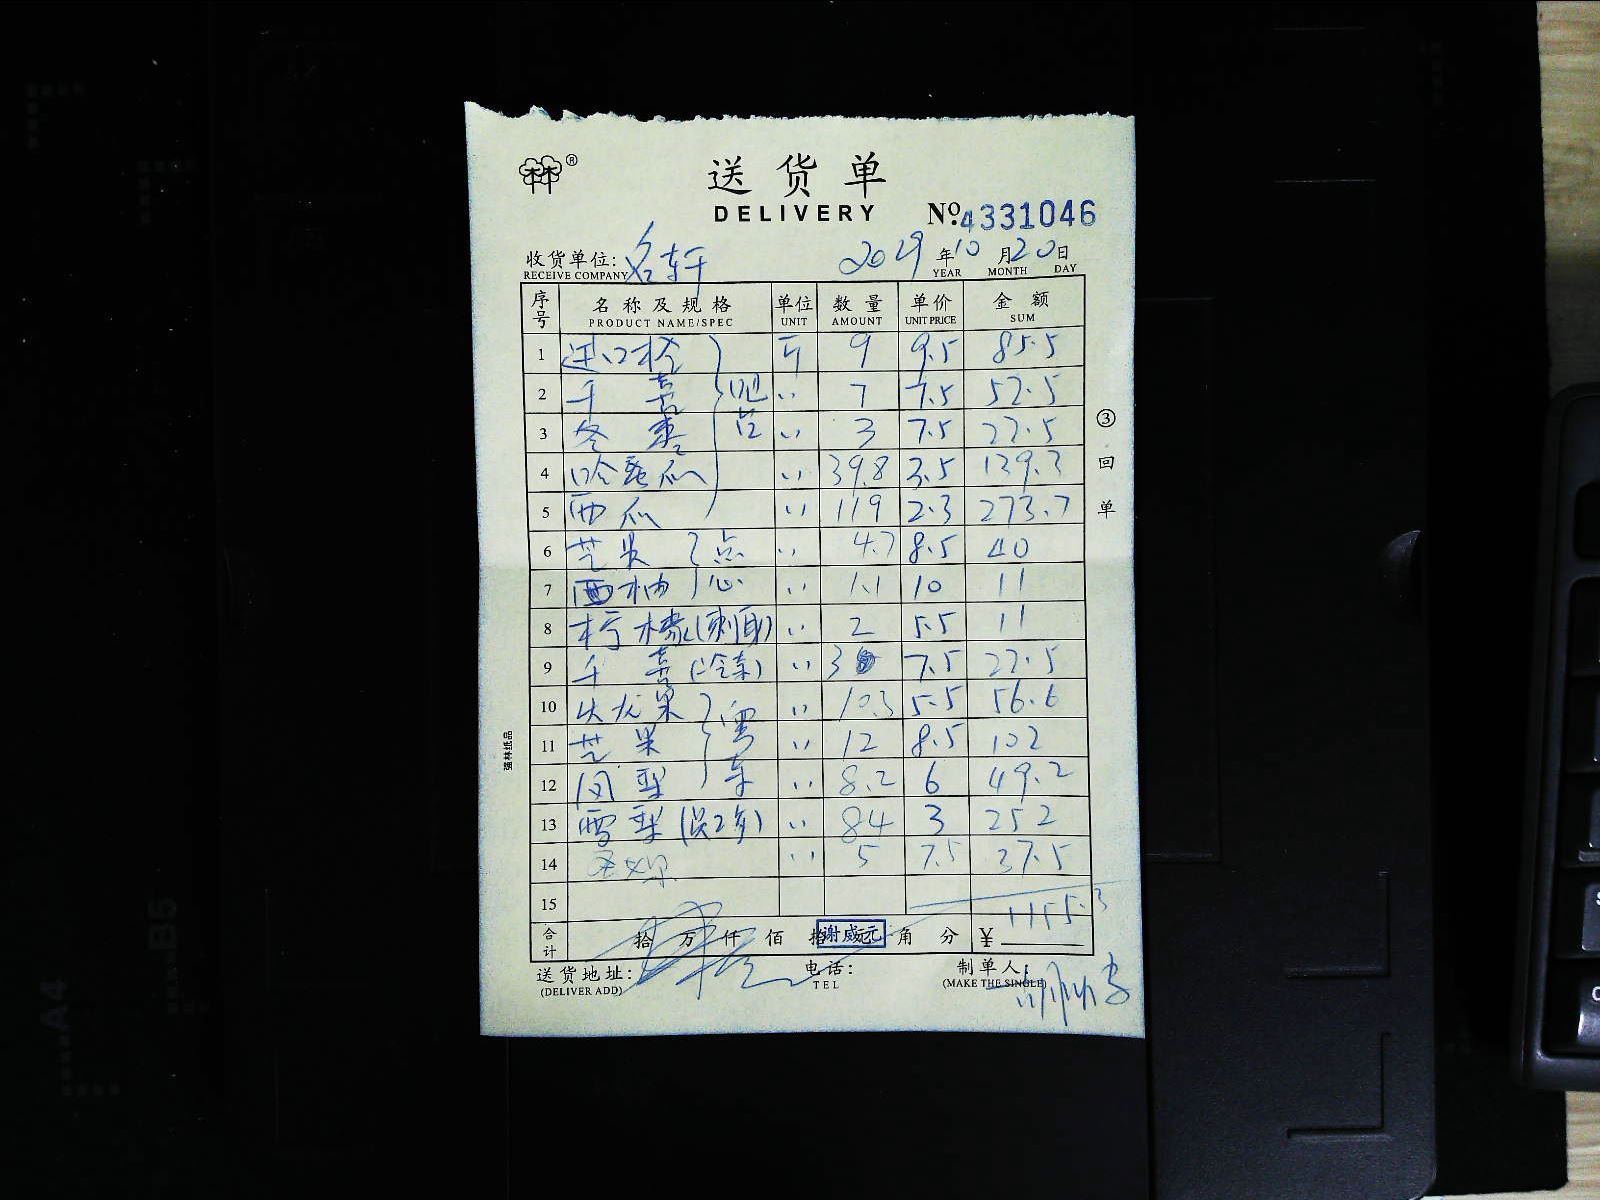 ®
送货单
DELIVERY
№.4331046
收货单位: 名轩 2019 年 10 月 20 日
RECEIVE COMPANY YEAR MONTH DAY
序号 名称及规格 单位 数量 单价 金额
PRODUCT NAME/SPEC UNIT AMOUNT UNIT PRICE SUM
1 进口橙 斤 9 9.5 85.5
2 千喜 吧 〃 7 7.5 52.5
3 冬枣 台 〃 3 7.5 22.5
4 哈蜜瓜 〃 39.8 3.5 139.3
5 西瓜 〃 119 2.3 273.7
6 芒果 点 〃 4.7 8.5 40
7 西柚 心 〃 1.1 10 11
8 柠檬(刺身) 〃 2 5.5 11
9 千喜(冷菜) 〃 3 7.5 22.5
10 火龙果 粤 〃 10.3 5.5 56.6
11 芒果 〃 12 8.5 102
12 凤梨 东 〃 8.2 6 49.2
13 雪梨 〃 84 3 252
14 〃 5 7.5 37.5
15 1155.3
合计 拾 万 仟 佰 拾 元 角 分 ¥
谢威
送货地址: 电话: 制单人:
(DELIVER ADD) TEL (MAKE THE SINGLE)
③回单
强林纸品
A4
B5